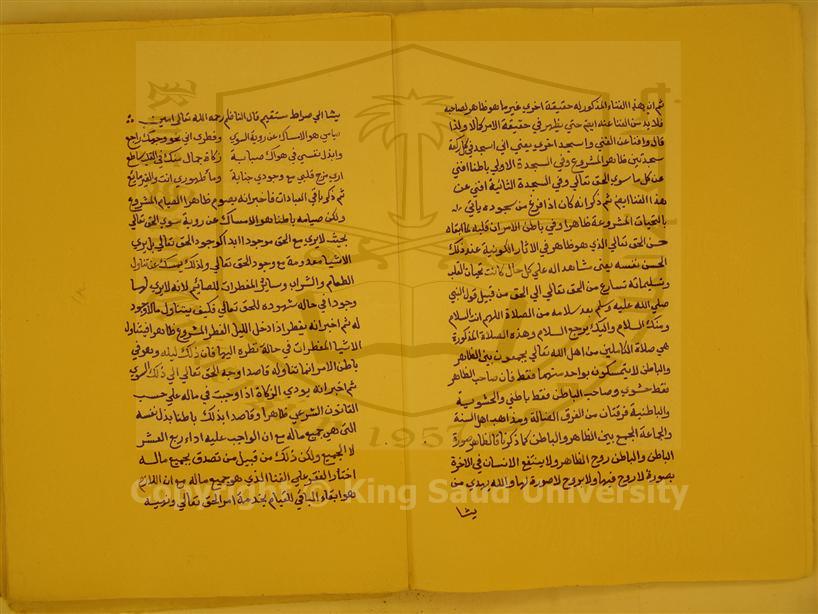 ثم ان هذا الفناء المذكور له حقيقة اخرى غير ما هو ظاهر لصاحبه
فلا بد من الفنا عنه ايضا حتى يظهر في حقيقة الامر كالا ولذا
قال وافنا عن الفنى واسجد اخرى يعني اني اسجد في كل ركعة
سجدتين ظاهرا هو المشروع وفي السجدة الاولى باطنا افنى
عن كل ما سوى الحق تعالى وفي السجدة الثانية افنى عن
هذا الفنا ايضا ثم ذكر انه كان اذا فرغ من سجوده ياتي
بالتحيات المشروعة ظاهرا وفي باطن الامر ان قلبه
حسن الحق تعالى الذي هو ظاهر في الاثار الكونية عند ذلك
الحسن نفسه يعني شاهد اله على كل حال كانت تحيات القلب
وتسليماته تسارع من الحق تعالى الى الحق من قبيل قول النبي
صلى الله عليه وسلم بعد سلامه من الصلاة اللهم انت السلام
ومنك السلام واليك يرجع السلام وهذه الصلاة المذكورة
هي صلاة الكاملين من اهل الله تعالى يجمعون بين الظاهر
والباطن لا يتمسكون بواحد منهما فقط فان صاحب الظاهر
فقط حشوي وصاحب الباطن فقط باطني والحشوية
والباطنية فرقتان من الفرق الضالة ومذاهب اهل السنة
والجماعة الجمع بين الظاهر والباطن كما ذكرنا فالظاهر صورة
الباطن والباطن روح الظاهر ولا ينتفع الانسان في الاخرة
بصورة لا روح فيها ولا بروح لا صورة لها والله يهدي من
يشا
يشا الى صراط مستقيم قال الناظم رحمه الله تعالى امين
صيامي هو الامساك عن روية السوى وفطري اني نحو وجهك راجع
وابذل نفسي في هواك صبابة زكاة جمال منك في القلب ساطع
ارى مزج قلبي مع وجودي جنابة وماء طهوري انت والغير مايع
ثم ذكر باقي العبادات فاخبر انه يصوم ظاهرا الصيام المشروع
ولكن صيامه باطنا هو الامساك عن روية سوى الحق تعالى
بحيث لا يرى مع الحق موجودا ابدا كوجود الحق تعالى بل يرى
الاشيا معدومة مع وجود الحق تعالى ولذلك يمسك عن تناول
الطعام والشراب وساير المفطرات للصايم لانه لا يرى لها
وجودا في حاله شهوده للحق تعالى فكيف يتناول ما لا وجود
له ثم اخبر انه يفطر اذا دخل الليل الفطر المشروع ظاهرا فيتناول
الاشيا المفطرات في حالة نظره اليها فان ذلك ليله وهو في
باطن الامر انما تناوله قاصدا وجه الحق تعالى الى ذلك السوى
ثم اخبر انه يودي الزكاة اذا وجبت في ماله على حسب
القانون الشرعي ظاهرا وقاصدا بذلك باطنا بذل نفسه
التي هي جميع ماله مع ان الواجب عليه اداء ربع العشر
لا الجميع ولكن ذلك من قبيل من تصدق بجميع ماله
اختار الفقر على الغنا الذي هو جميع ماله مع ان اللازم
هو ابقاء الباقي للقيام بخدمة امر الحق تعالى ونهيه
Copyright © King Saud University
1957